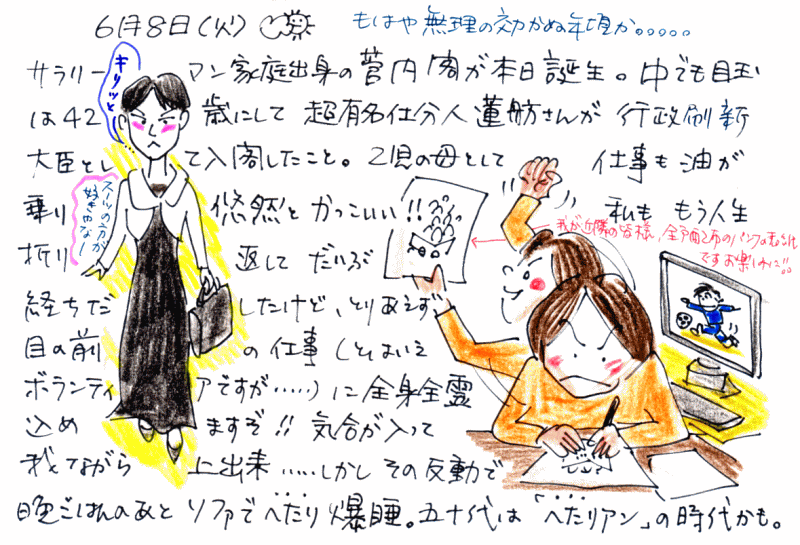 6月8日(火)
もはや無理の効かぬ年頃か。。。。。
サラリーマン家庭出身の菅内閣が本日誕生。中でも目玉
は42歳にして超有名仕分人蓮舫さんが行政刷新
大臣として入閣したこと。2児の母として仕事も油が
乗り悠然とかっこいい!!私ももう人生
折り返してだいぶ
経ちだしたけど、とりあえず
目の前の仕事(とはいえ
ボランティアですが……)に全身全霊
込めますぞ!!気合が入って
我ながら上出来……しかしその反動で
晩ごはんのあとソファでへたり爆睡。五十代は「へたリアン」の時代かも。
キリッと
スーツの方が
好きやな!
我が近隣の皆様、全戸配布の
ですお楽しみに!!